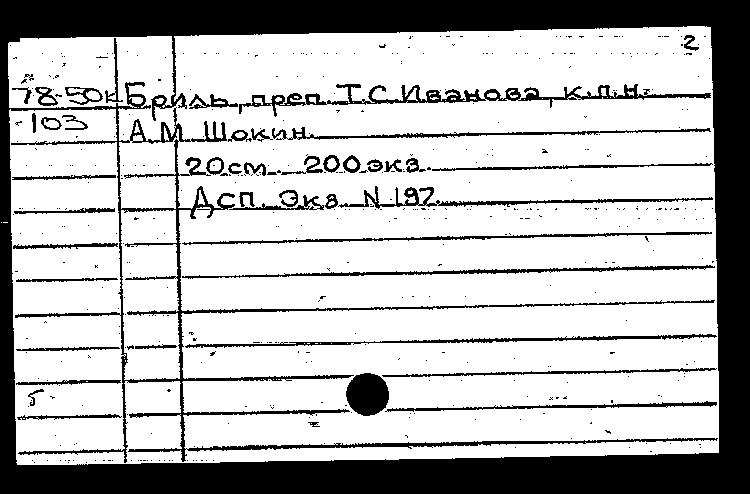 2
78-50к Бриль, преп. Т.С. Иванова, к.п.н.
103 А.М. Шокин.
20 см. 200 экз.
Дсп. Экз. N 197.
5